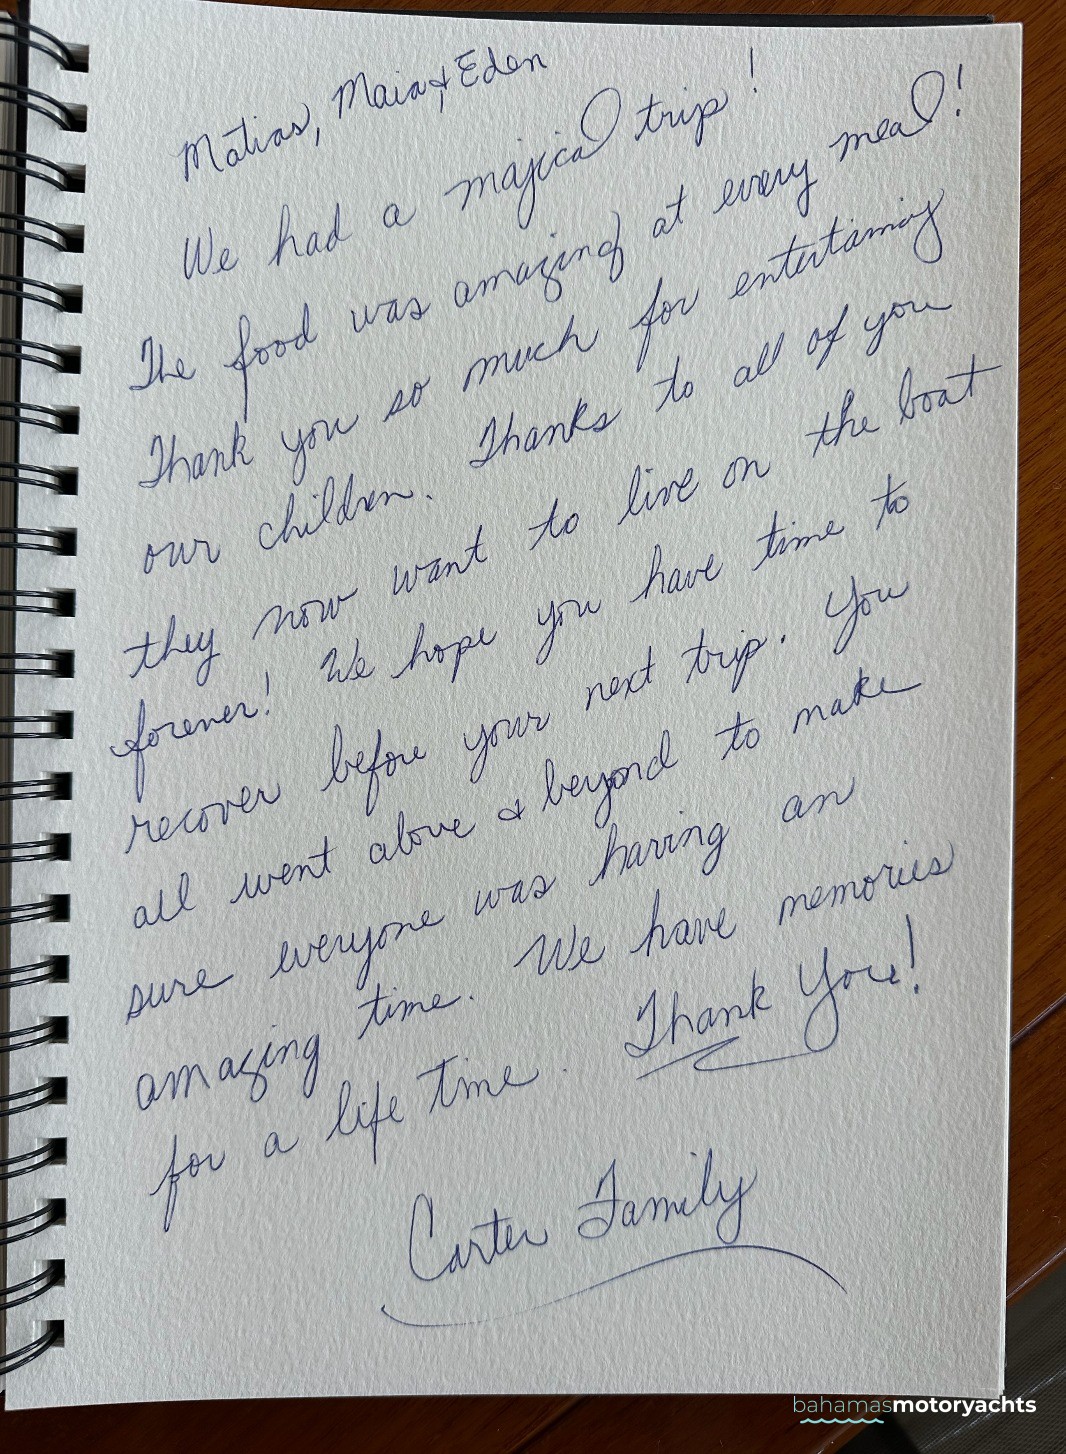 Matias, Maia & Eden
We had a majical trip!
The food was amazing at every meal!
Thank you so much for entertaining
our children. Thanks to all of you
they now want to live on the boat
forever! We hope you have time to
recover before your next trip. You
all went above & beyond to make
sure everyone was having an
amazing time. We have memories
for a life time. Thank You!
Carter Family
bahamasmotoryachts